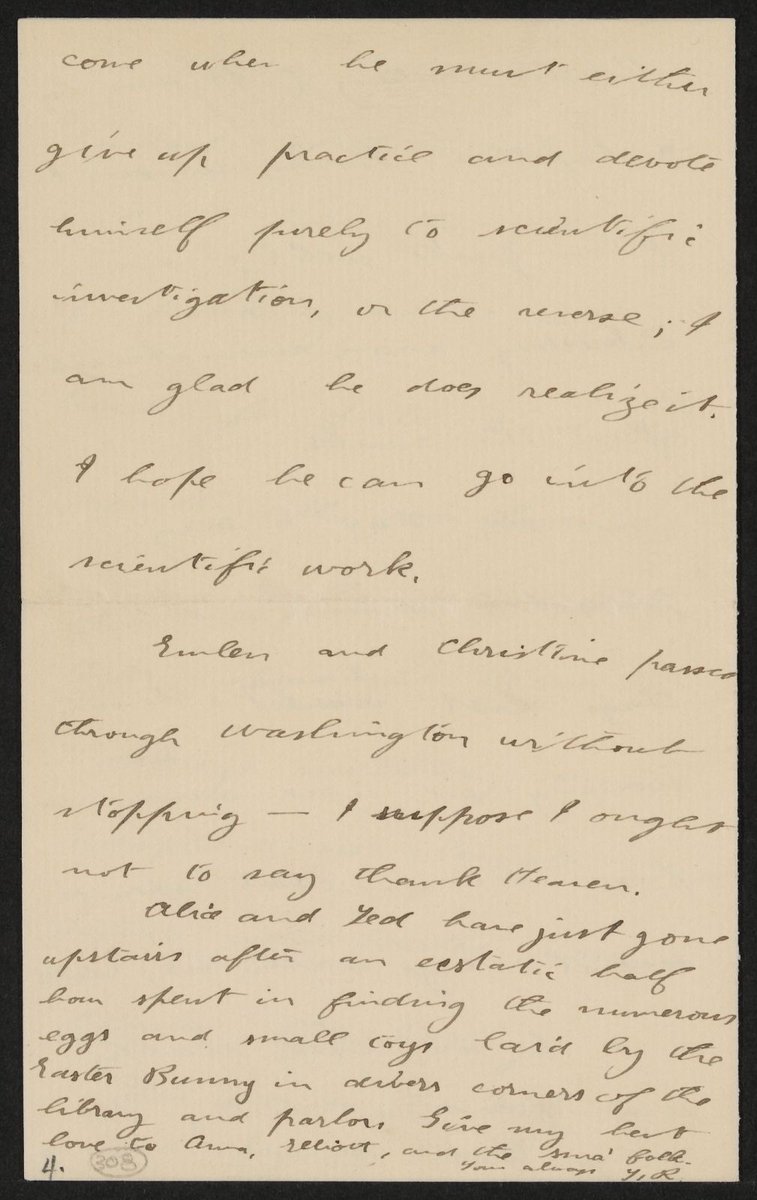 come when he must either
give up practice and devote
himself purely to scientific
investigation, or the reverse; I
am glad he does realize it.
I hope he can go into the
scientific work.
Emlen and Christine passed
through Washington without
stopping — I suppose I ought
not to say thank Heaven.
Alice and Ted have just gone
upstairs after an ecstatic half
hour spent in finding the numerous
eggs and small toys laid by the
Easter Bunny in divers corners of the
library and parlor. Give my best
love to Anna, Elliott, and the sma' folk.
Yours always T. R.
4. 308